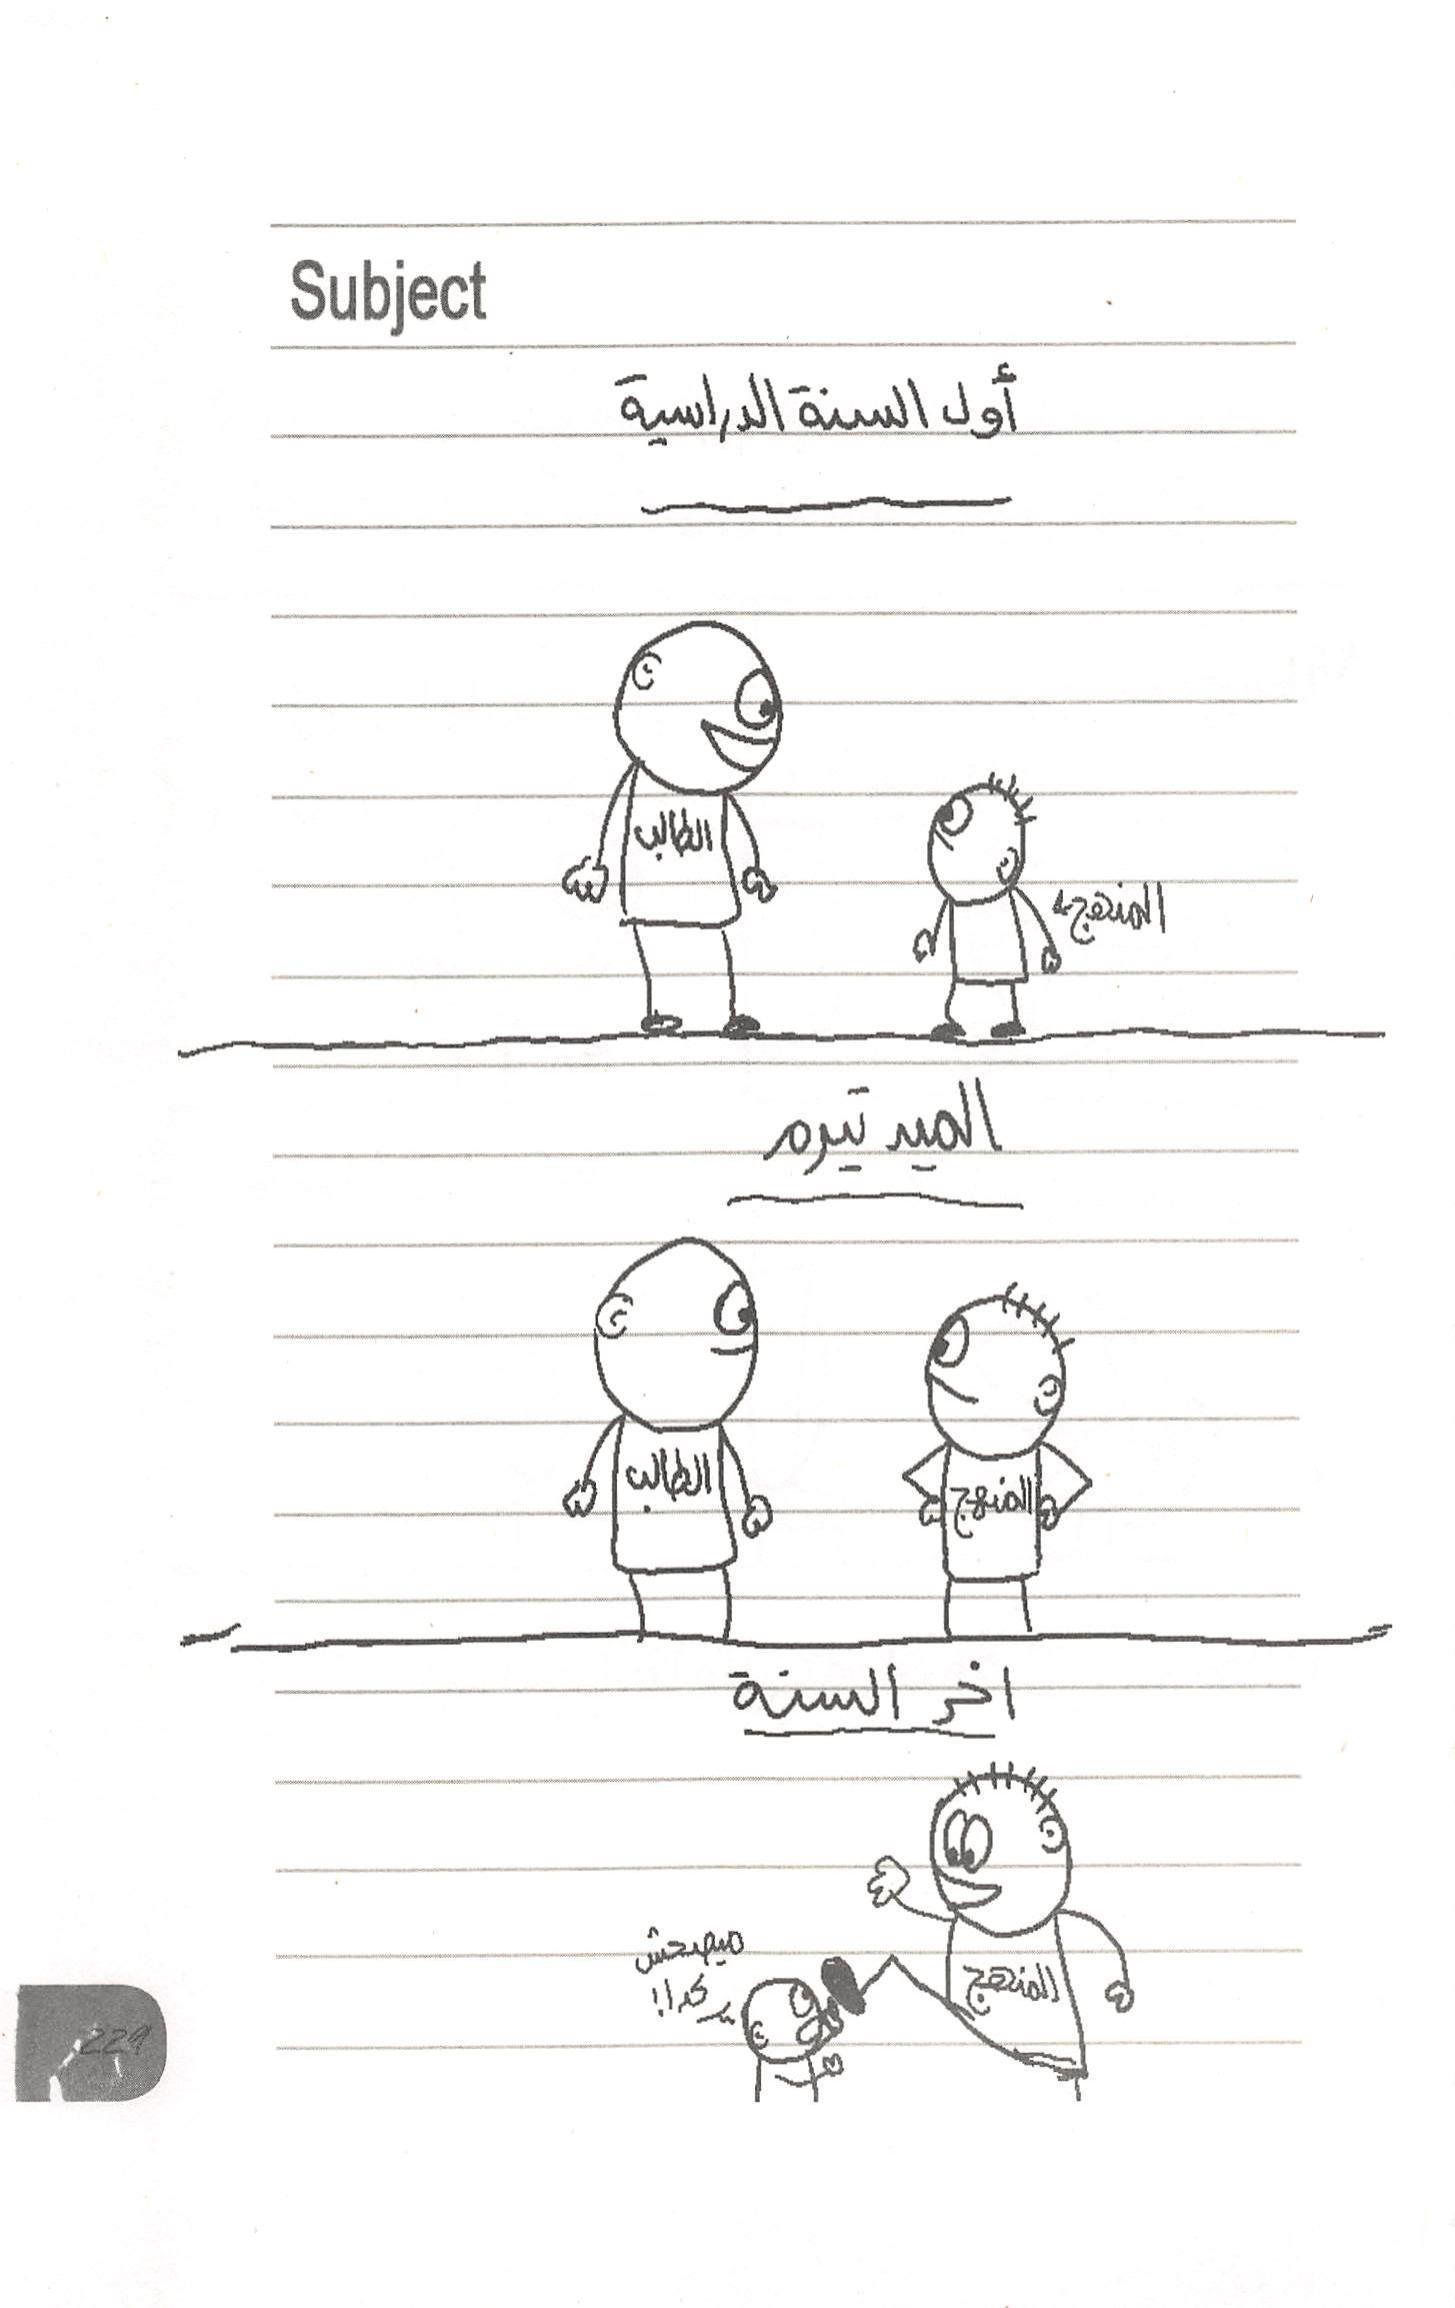 Subject
أول السنة الدراسية
الطالب
المنهج
الميد تيرم
الطالب
المنهج
اخر السنة
المنهج
ميصحش
كدا!
229